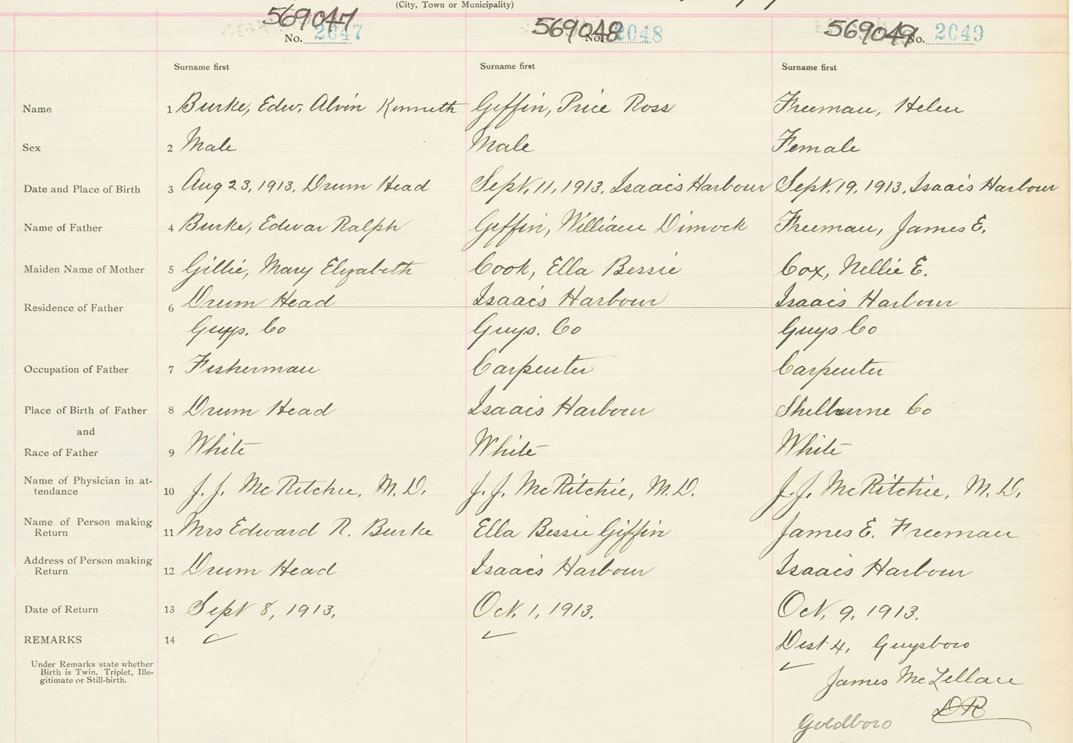 (City, Town or Municipality)
569047 569048 569049
No. 2047 No. 2048 No. 2049
Surname first Surname first Surname first
Name 1 Burke, Edw. Alvin Kenneth Giffin, Price Ross Freeman, Helen
Sex 2 Male Male Female
Date and Place of Birth 3 Aug 23, 1913, Drum Head Sept. 11, 1913, Isaac's Harbour Sept. 19, 1913, Isaac's Harbour
Name of Father 4 Burke, Edwar Ralph Giffin, William Dimock Freeman, James E.
Maiden Name of Mother 5 Gillie, Mary Elizabeth Cook, Ella Bessie Cox, Nellie E.
Residence of Father 6 Drum Head Isaac's Harbour Isaac's Harbour
Guys. Co Guys. Co Guys Co
Occupation of Father 7 Fisherman Carpenter Carpenter
Place of Birth of Father 8 Drum Head Isaac's Harbour Shelburne Co
and
Race of Father 9 White White White
Name of Physician in at-
tendance 10 J. J. McRitchie, M.D. J. J. McRitchie, M.D. J. J. McRitchie, M.D.
Name of Person making
Return 11 Mrs Edward R. Burke Ella Bessie Giffin James E. Freeman
Address of Person making
Return 12 Drum Head Isaac's Harbour Isaac's Harbour
Date of Return 13 Sept 8, 1913. Oct. 1, 1913. Oct. 9, 1913.
REMARKS 14 Dist 4, Guysboro
Under Remarks state whether
Birth is Twin, Triplet, Ille-
gitimate or Still-birth.
James McLellan
DR
Goldboro